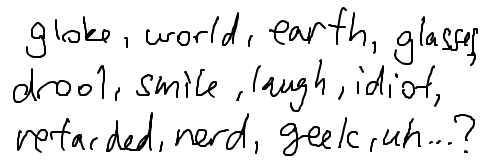 globe, world, earth, glasses,
drool, smile, laugh, idiot,
retarded, nerd, geek, uh...?